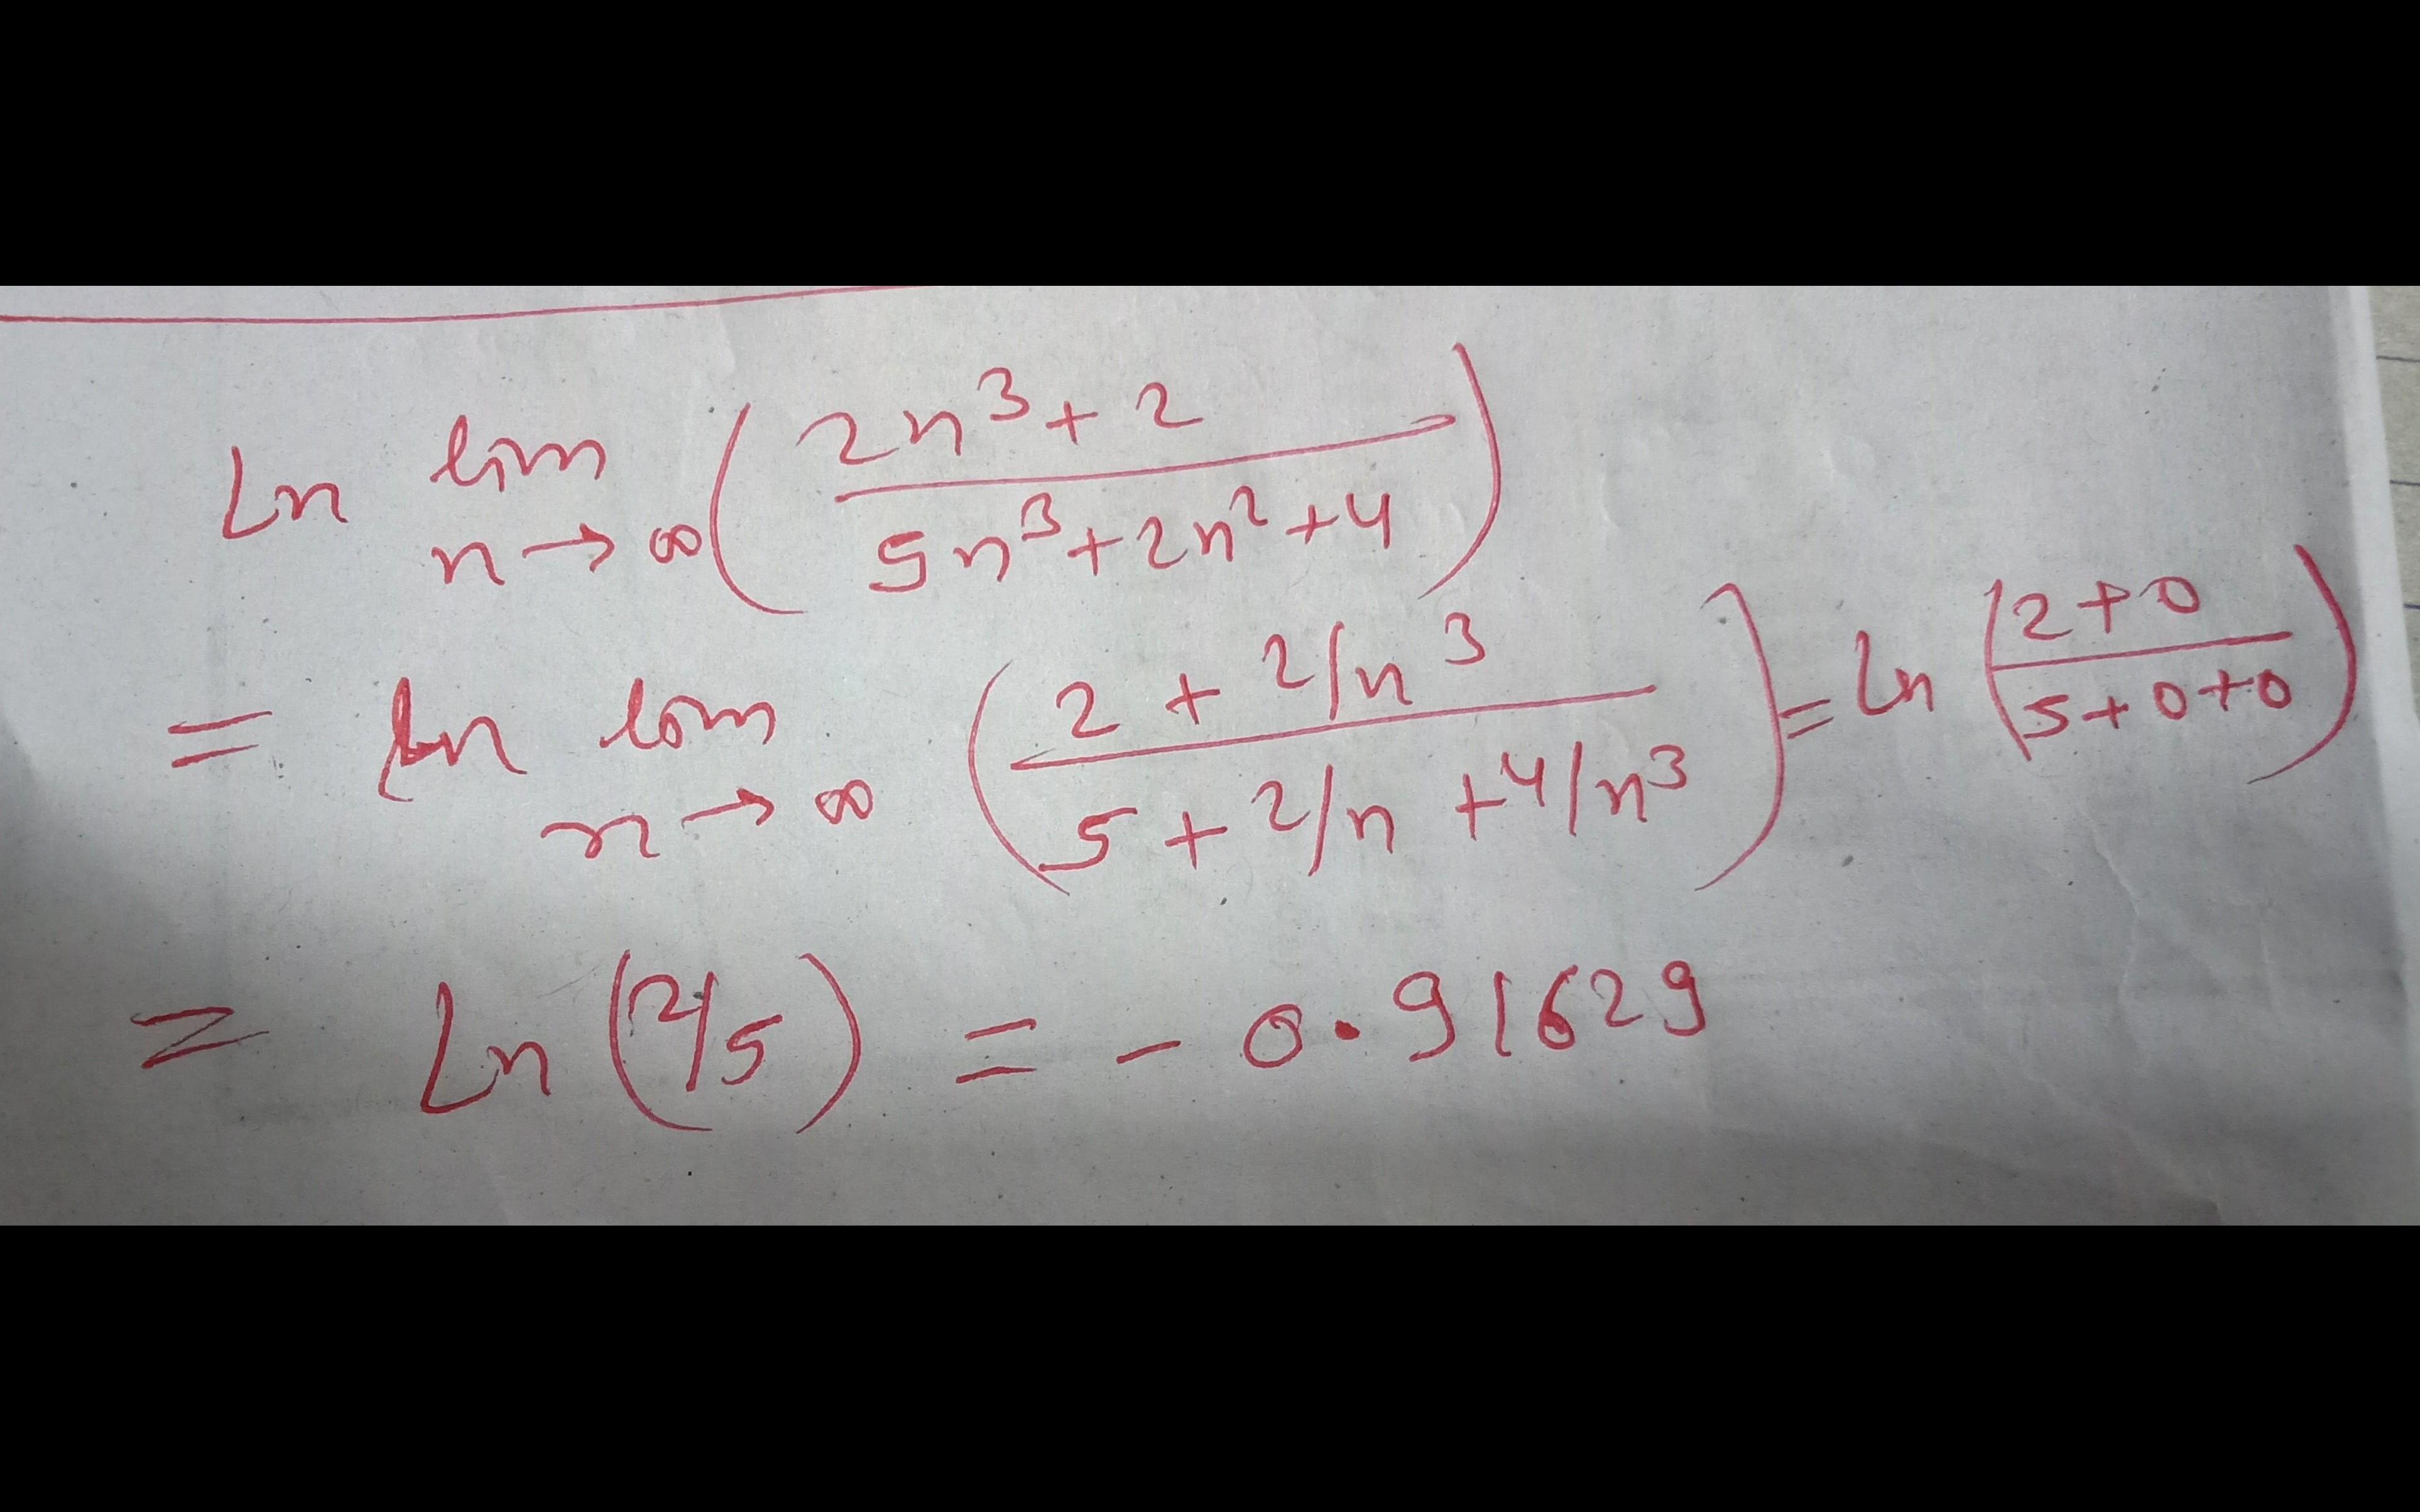 Ln lim n→∞ ( (2n³+2) / (5n³+2n²+4) )
= ln lim n→∞ ( (2 + 2/n³) / (5 + 2/n + 4/n³) ) = ln ( (2+0) / (5+0+0) )
= Ln (2/5) = - 0.91629